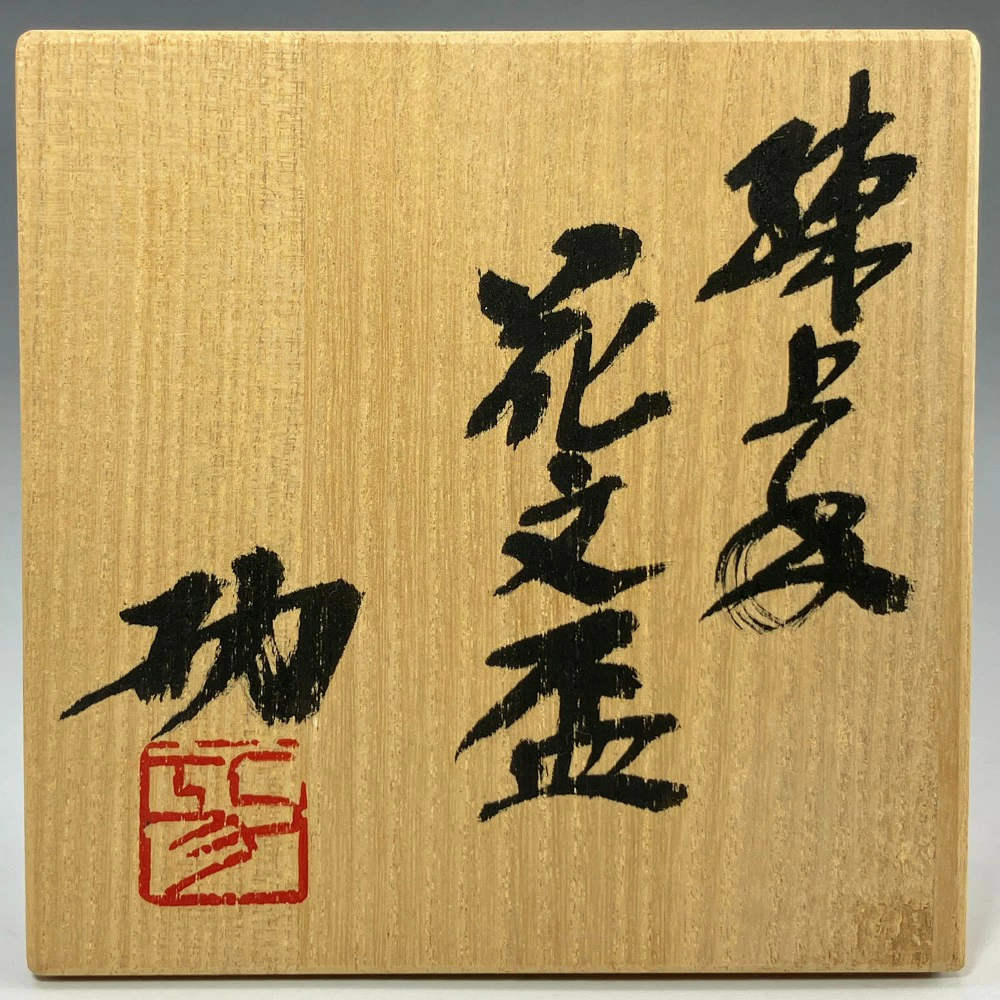 練上
花文盃
功